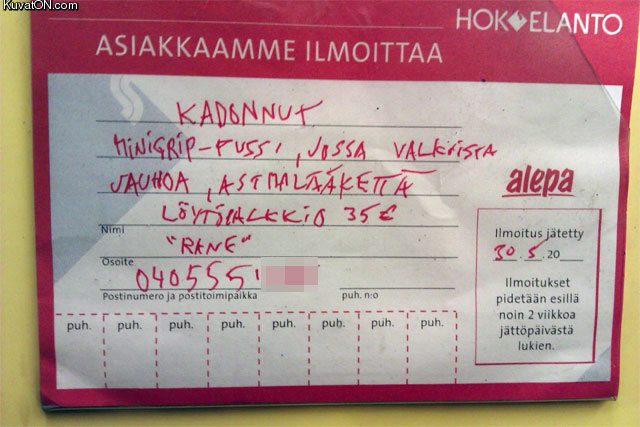 KuvatON.com
HOK ELANTO
ASIAKKAAMME ILMOITTAA
KADONNUT
MINIGRIP-PUSSI, JOSSA VALKOISTA
JAUHOA, ASTMALÄÄKETTÄ
LÖYTÖPALKKIO 35€
Nimi
"RANE"
Osoite
040555
Postinumero ja postitoimipaikka
puh. n:o
puh. puh. puh. puh. puh. puh. puh. puh.
alepa
Ilmoitus jätetty
30.5.20
Ilmoitukset
pidetään esillä
noin 2 viikkoa
jättöpäivästä
lukien.